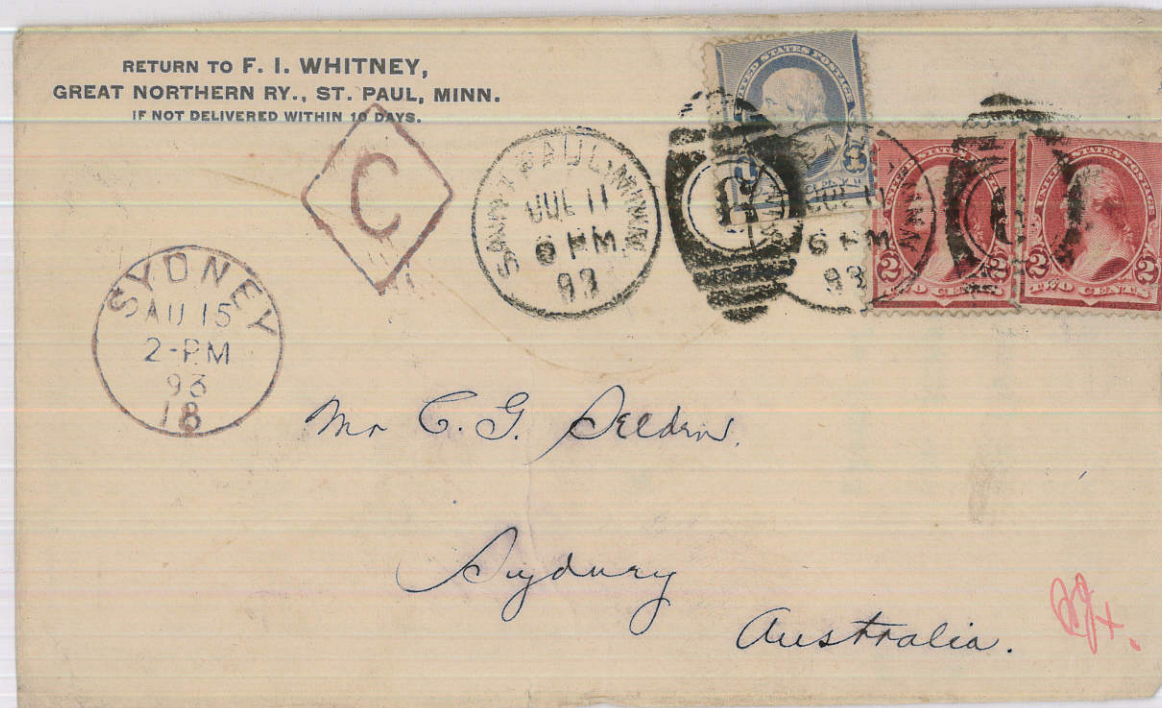 RETURN TO F. I. WHITNEY,
GREAT NORTHERN RY., ST. PAUL, MINN.
IF NOT DELIVERED WITHIN 10 DAYS.
C
SAINT PAUL, MINN.
JUL 11
6 PM
93
UNITED STATES POSTAGE
UNITED STATES POSTAGE
2 2
TWO CENTS
UNITED STATES POSTAGE
2 2
TWO CENTS
6 PM
93
SYDNEY
AU 15
2-PM
93
18
Mr C. G. Seldon.
Sydney
Australia.